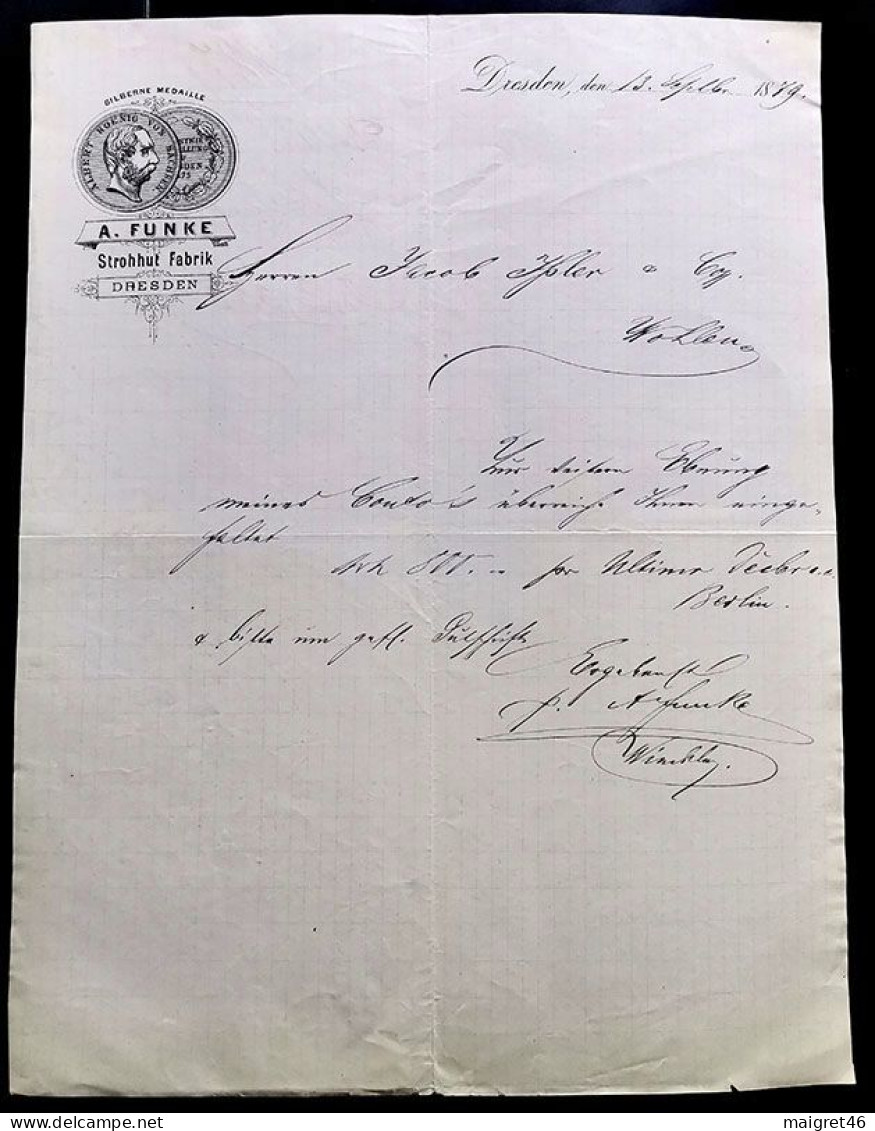 Dresden, den 13. Septbr 1879.
SILBERNE MEDAILLE
ALBERT KOENIG VON SACHSEN
A. FUNKE
Strohhut Fabrik
DRESDEN
Herren Jacob Isler & Co.
Wohlen
Zur Ebnung
meines Conto's überreiche Ihnen einge-
faltet
Mk 800.- per Ultimo Decbr a.c.
Berlin.
& bitte um gefl. Gutschrift
Ergebenst
p. A Funke
maigret46